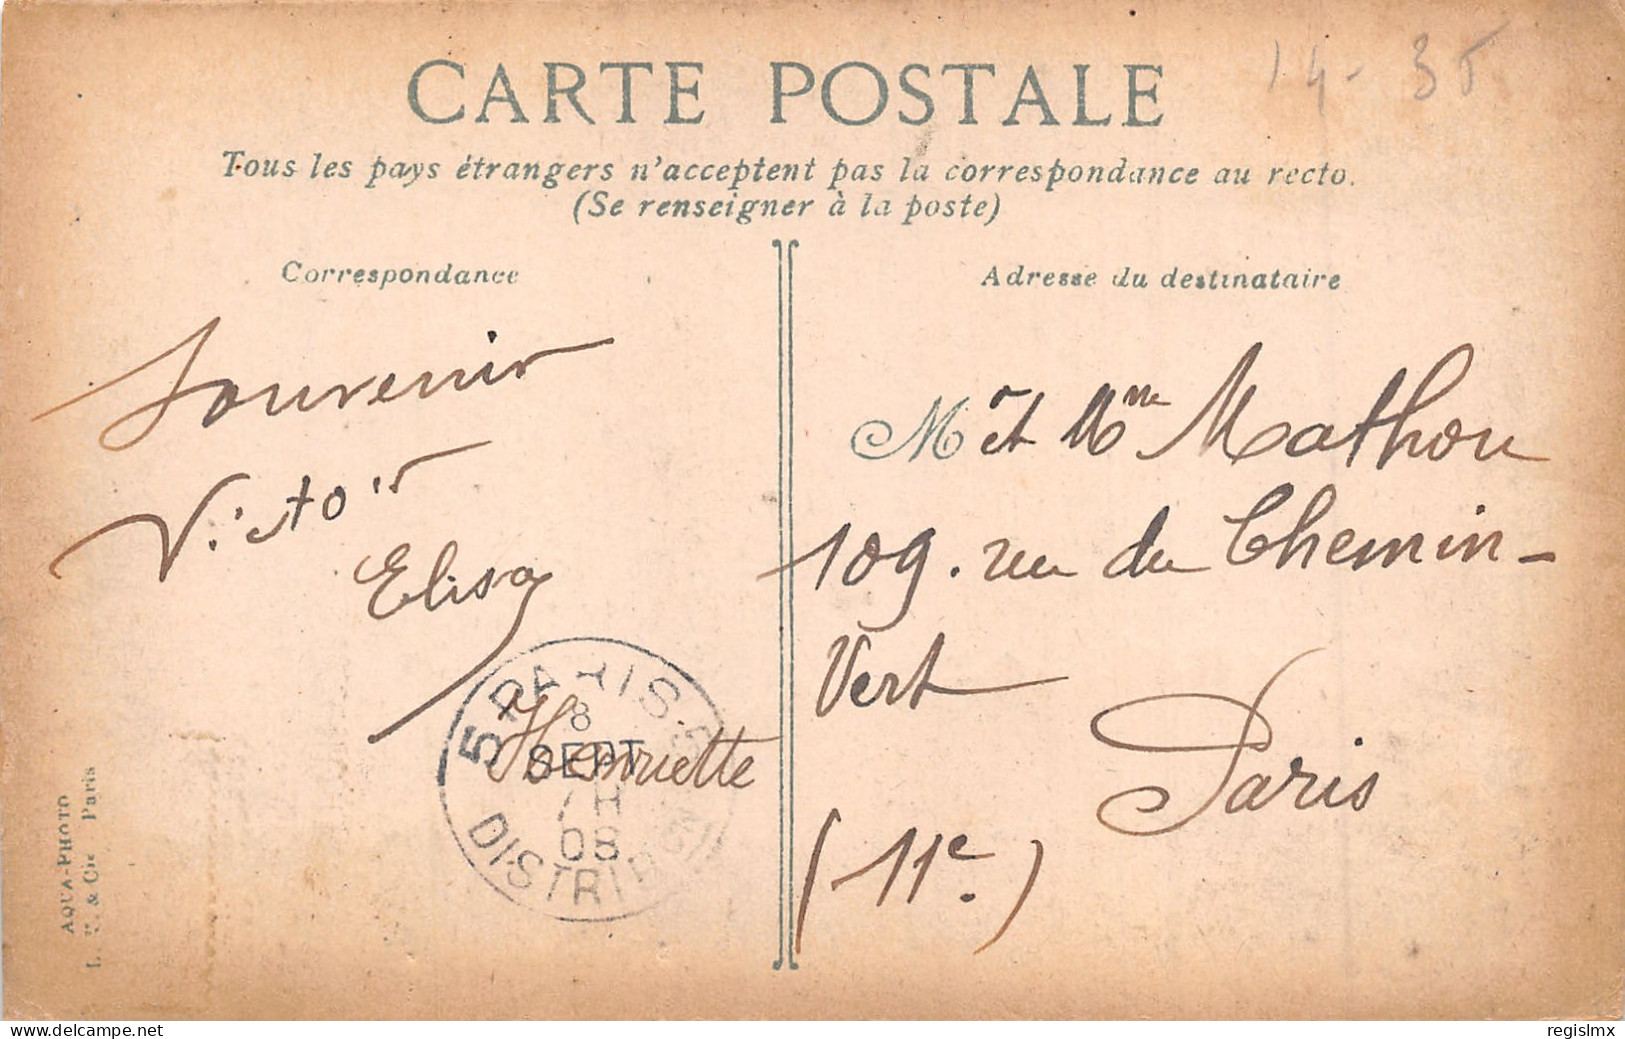 14-35
CARTE POSTALE
Tous les pays étrangers n'acceptent pas la correspondance au recto.
(Se renseigner à la poste)
Correspondance
Souvenir
Victoir
Elisa
Henriette
5 PARIS
8
SEPT
7H
08
DISTRIB
AQUA-PHOTO
L. V. & Cie Paris
Adresse du destinataire
Mr et Mme Mathou
109. rue du Chemin-
Vert
Paris
(11e.)
delcampe.net
regislmx